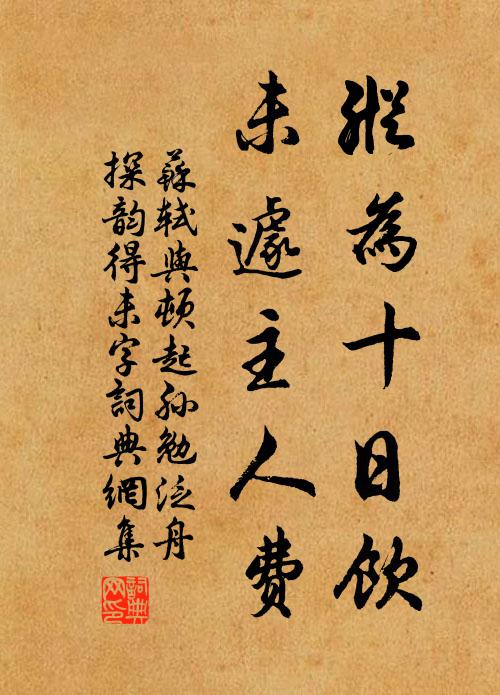 縱為十日飲
未遽主人費
蘇軾與頓起孫勉泛舟
探韻得未字詞典網集
詞典
网印